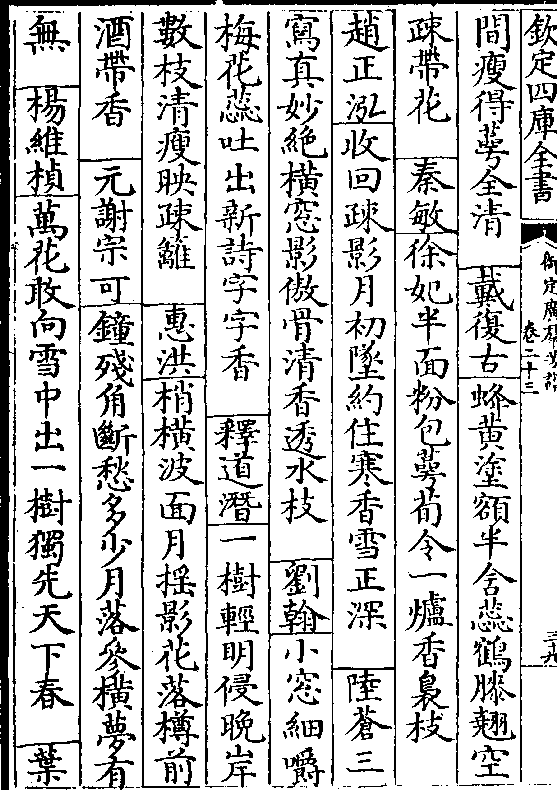 欽定四庫全書
御定廣羣芳譜
卷二十三
間瘦得萼全清 戴復古 蜂黄塗額半含蕊鶴膝翹空
疎帶花 秦敏 徐妃半面粉包萼荀令一爐香裊枝
趙正泓 收回疎影月初墜約住寒香雪正深 陸蒼三
寫真妙絶橫窓影傲骨清香透水枝 劉翰 小窓細嚼
梅花蕊吐出新詩字字香 釋道潛 一樹輕明侵曉岸
數枝清瘦映疎籬 惠洪 梢橫波面月揺影花落樽前
酒帶香 元謝宗可 鐘殘角斷愁多少月落參橫夢有
無 楊維楨 萬花敢向雪中出一樹獨先天下春 葉